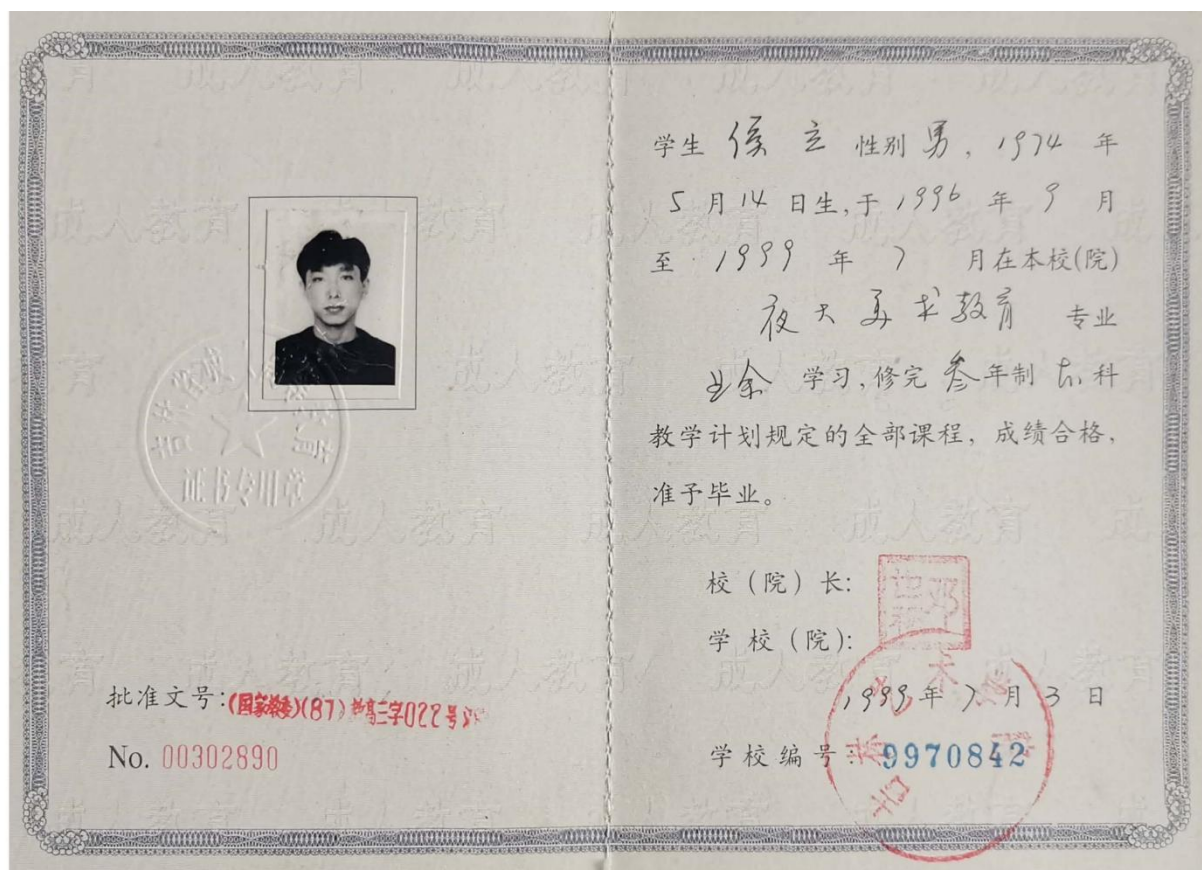 吉林省成人高等教育
证书专用章
批准文号:(国家教委)(87)教高三字022号
No. 00302890
学生 侯立 性别 男, 1974 年
5 月 14 日生,于 1996 年 9 月
至 1999 年 7 月在本校(院)
夜大美术教育 专业
业余 学习,修完 叁年制 本科
教学计划规定的全部课程, 成绩合格,
准予毕业。
校(院)长:
学校(院):
吉林艺术学院
1999年7月3日
学校编号: 9970842
成人教育